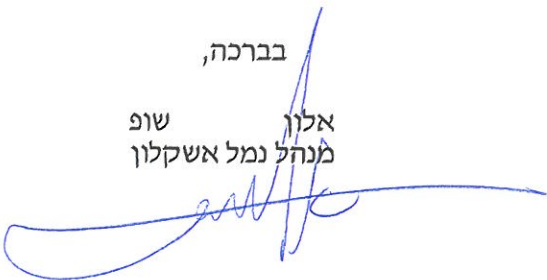 בברכה,
אלון שופ
מנהל נמל אשקלון